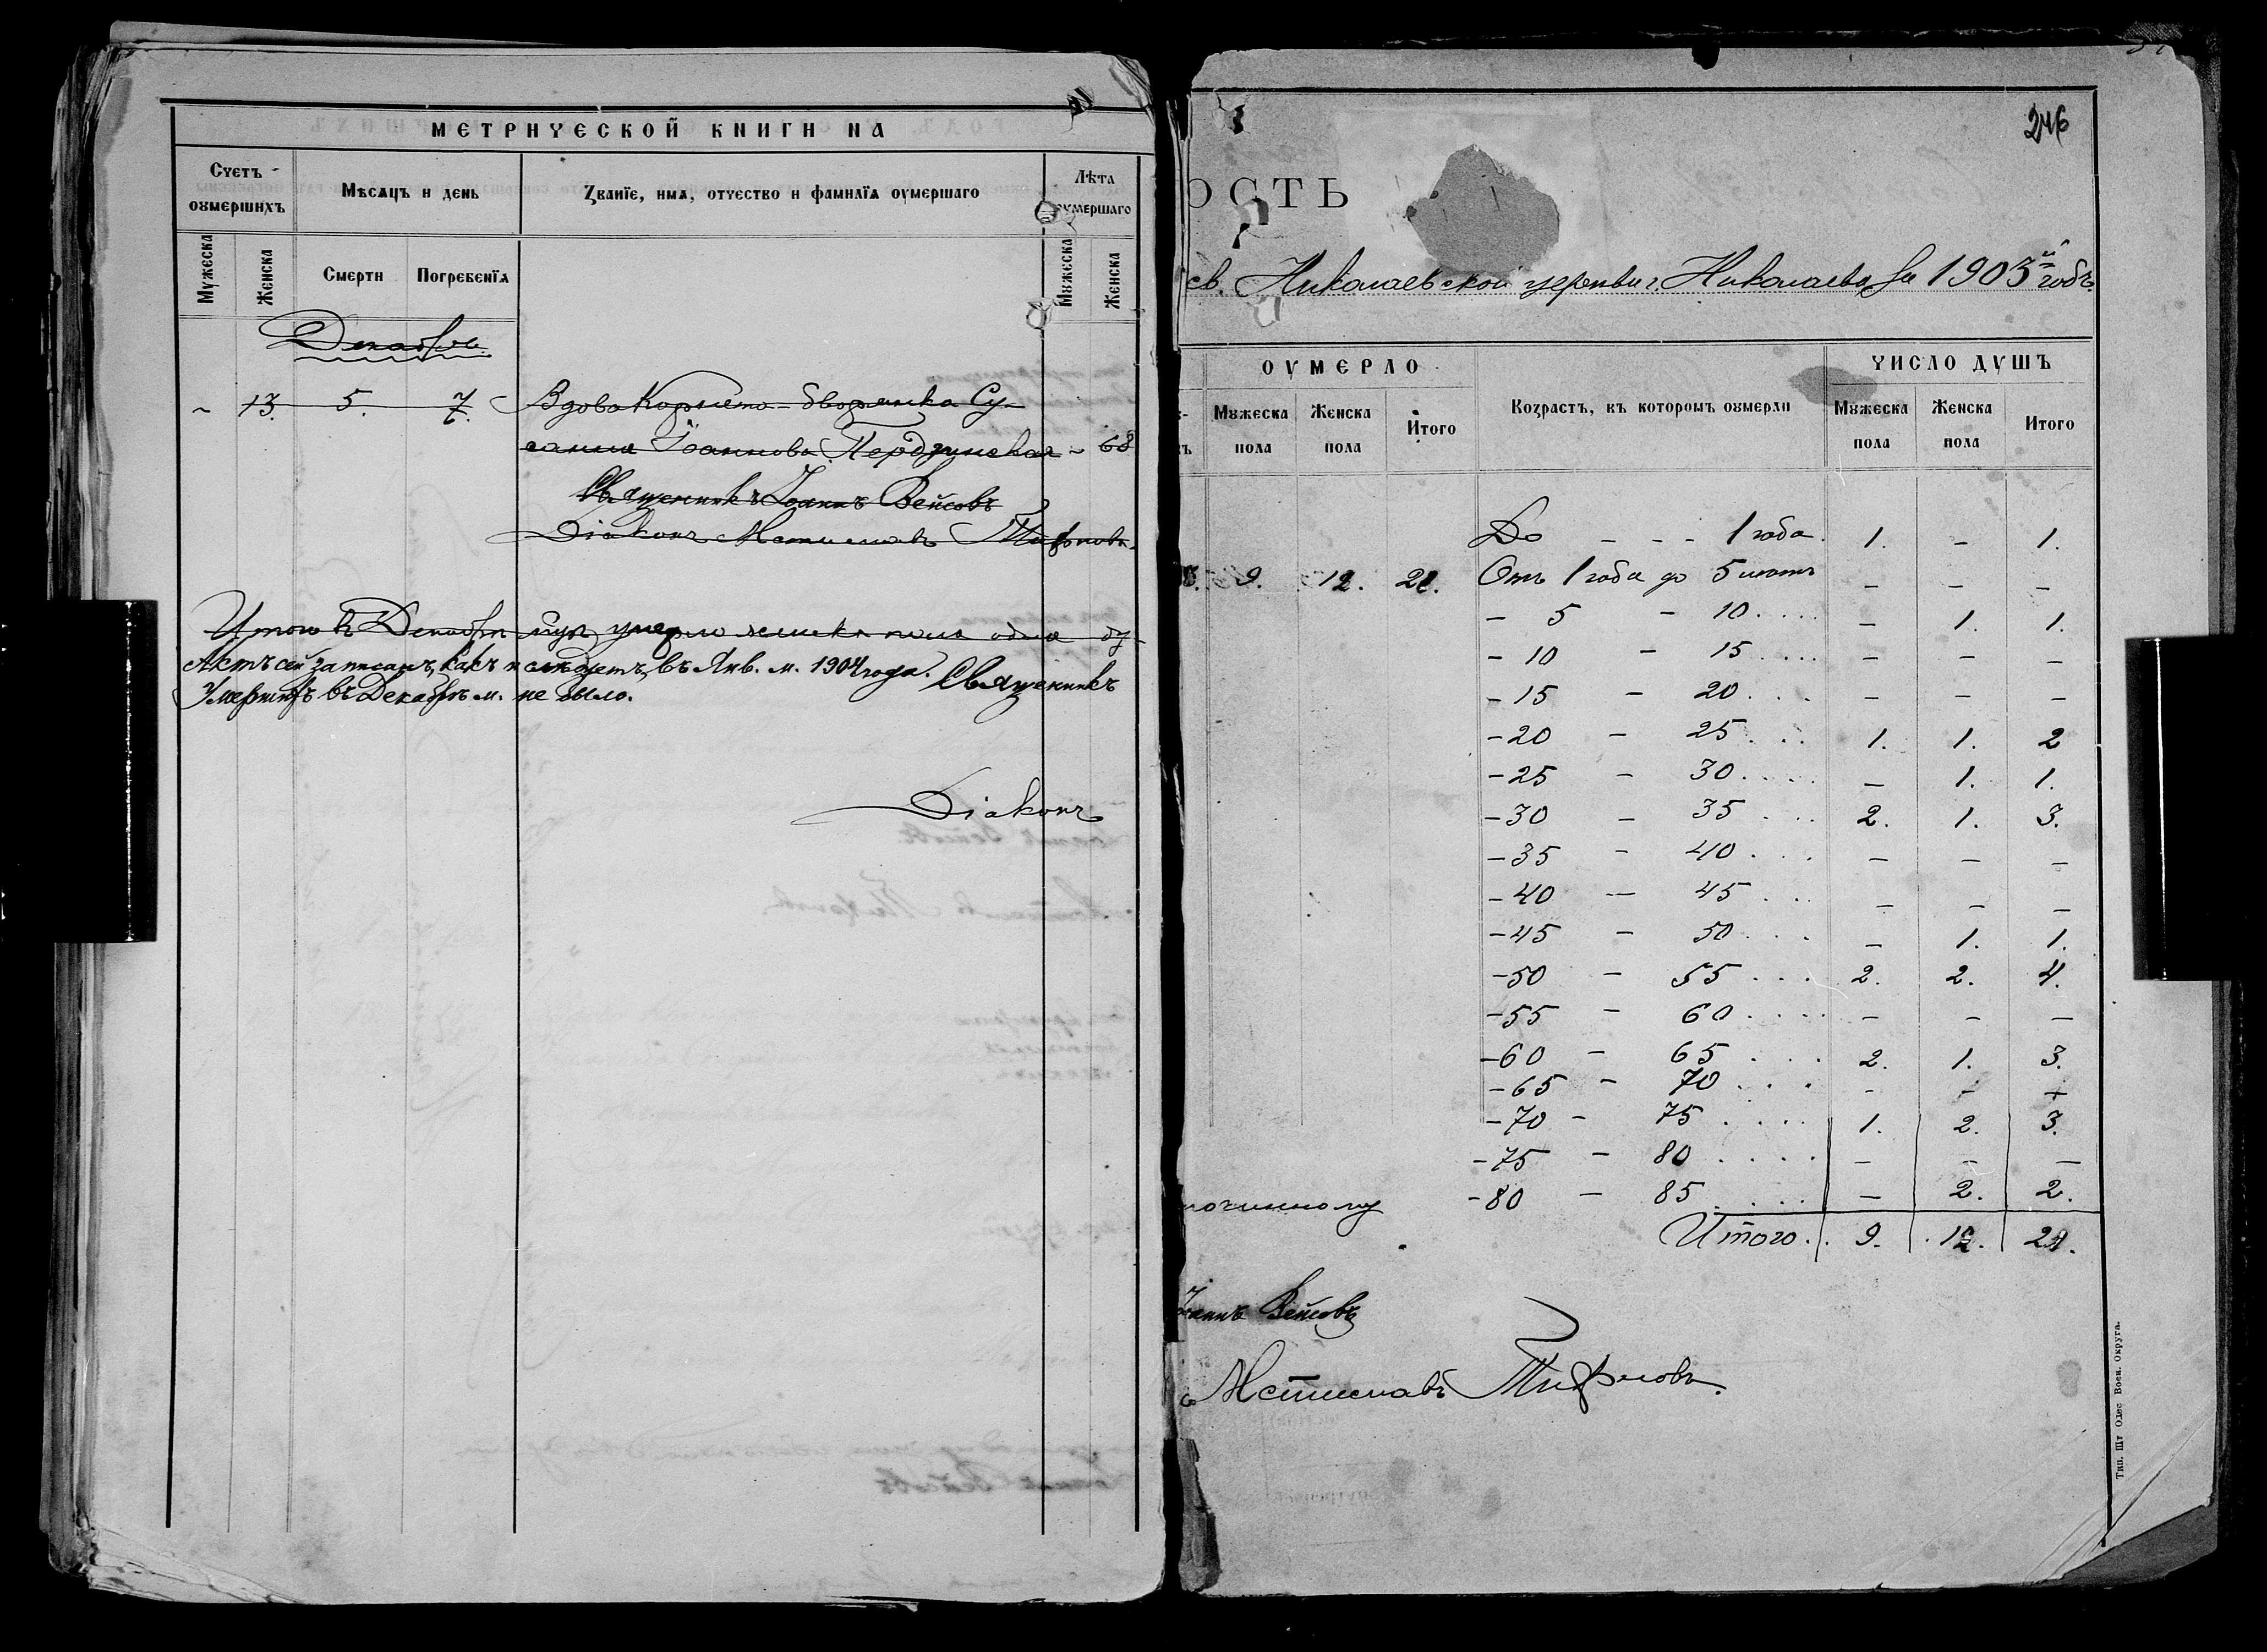 МЕТРИЧЕСКОЙ КНИГИ НА
Счетъ оумершихъ
Мѣсяцъ и день
Званїе, имя, отчество и фамилїя оумершаго
Лѣта оумершаго
Мужеска
Женска
Смерти
Погребенїя
Мужеска
Женска
Декабрь.
~ 13. 5. 7. Вдова Корнета - дворянка Су-
санна Іоаннова Пердзинская ~ 68
Священникъ Іоаннъ Вейсовъ
Діаконъ Мстиславъ
Итого въ Декабрѣ мцѣ умерло женска пола одна ду-
Актъ сей записанъ, какъ и слѣдуетъ, въ Янв. м. 1904 года. Священникъ
Умершихъ въ Декабрѣ м. не было.
Діаконъ
246
ОСТЬ
св. Николаевской церкви г. Николаева за 1903й годъ.
ОУМЕРЛО
ЧИСЛО ДУШЪ
Мужеска пола
Женска пола
Итого
Возрастъ, въ которомъ оумерли
Мужеска пола
Женска пола
Итого
До - - - 1 года. 1. - 1.
9. 12. 21. Отъ 1 года до 5 лѣтъ - - -
- 5 - 10 .... - 1. 1.
- 10 - 15 .... - - -
- 15 - 20 ... - - -
- 20 - 25 ... 1. 1. 2
- 25 - 30 .... - 1. 1.
- 30 - 35 ... 2. 1. 3.
- 35 - 40 ... - - -
- 40 - 45 ... - - -
- 45 - 50 ... - 1. 1.
- 50 - 55 ... 2. 2. 4.
- 55 - 60 .... - - -
- 60 - 65 ... 2. 1. 3.
- 65 - 70 ... - - -
- 70 - 75 .... 1. 2. 3.
- 75 - 80 .... - - -
очинному - 80 - 85 .... - 2. 2.
Итого.. 9. 12. 21.
Іоаннъ Вейсовъ
Мстиславъ
Тип. Шт Одес Воен. Округа.